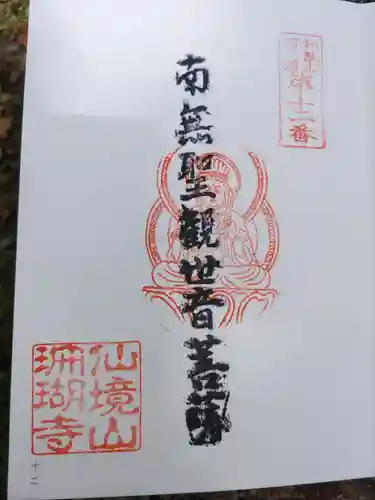 第十二番
南無聖觀世音菩薩
仙境山
珊瑚寺
十二